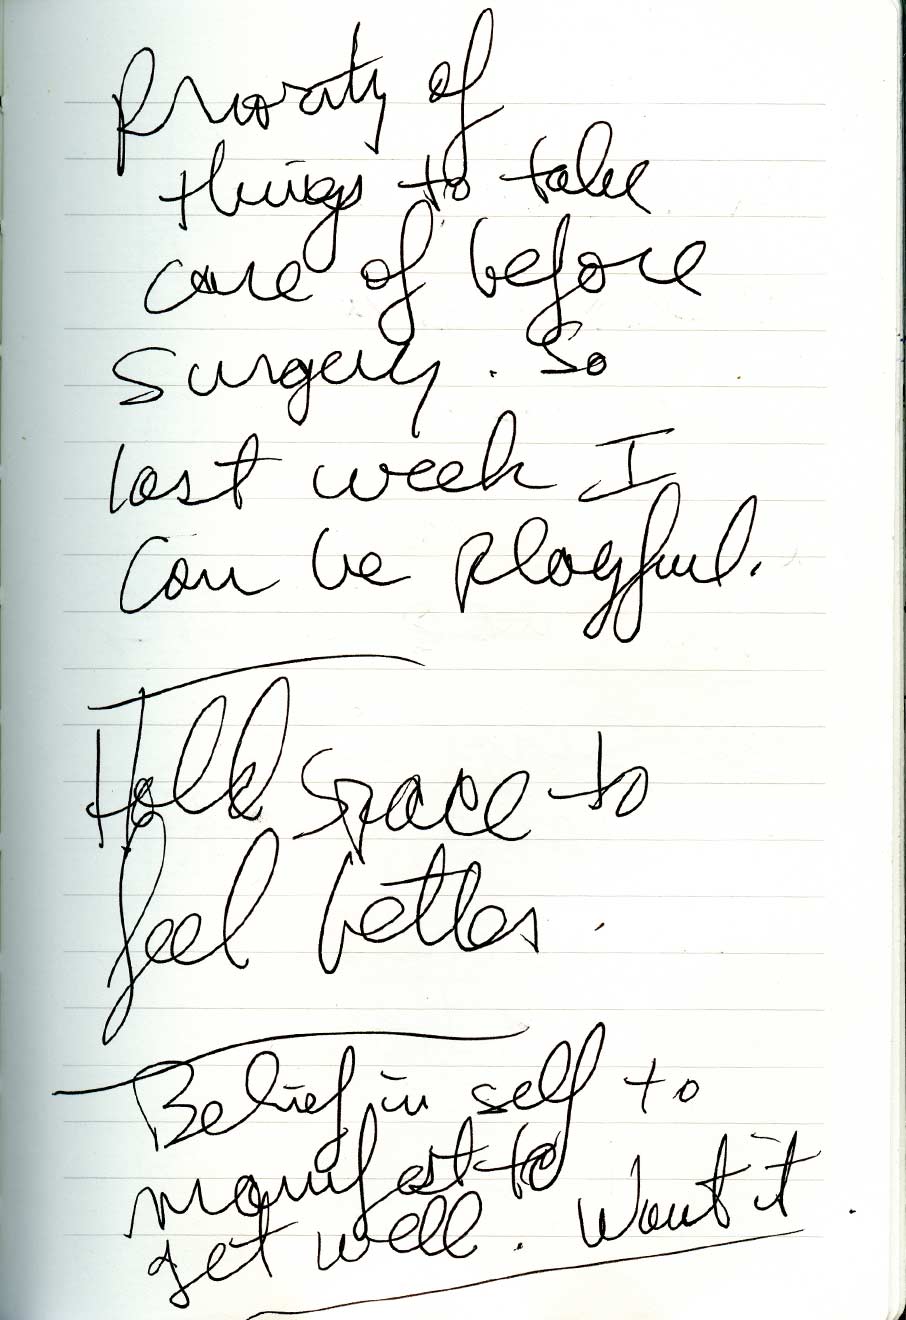 Priority of
things to take
care of before
surgery. So
last week I
can be playful.
Hold space to
feel better.
Belief in self to
manifest to
get well. Want it.